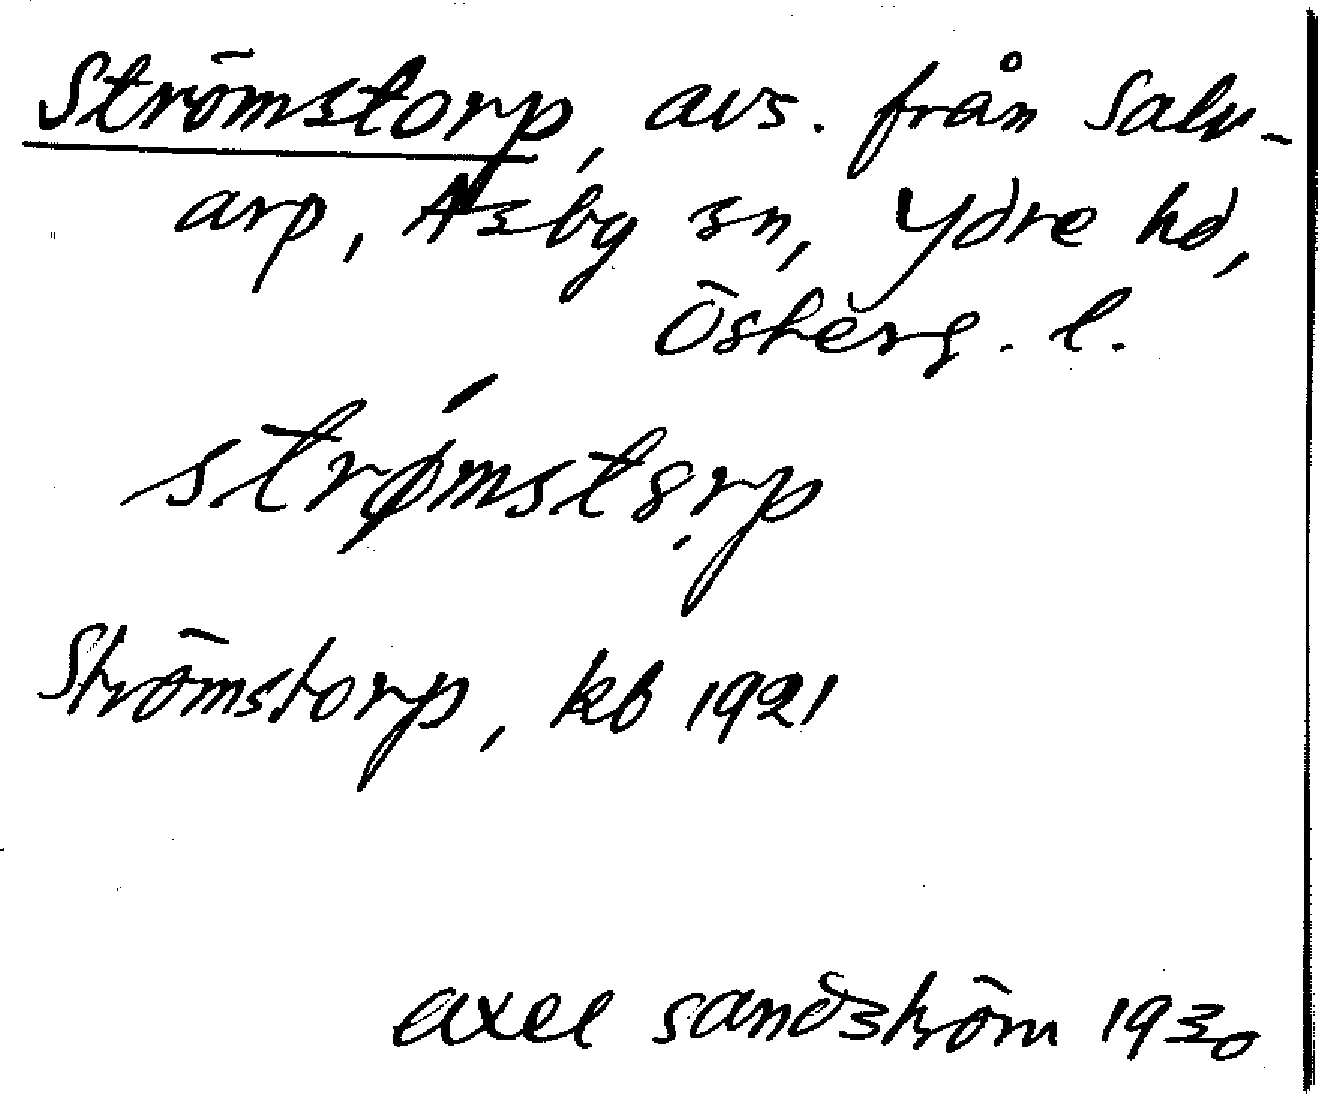 Strömstorp, avs. från Salv-
arp, Asby sn, Ydre hd,
Österg. l.
strømstȣ̣rp
Strömstorp, kb 1921
axel sandström 1930